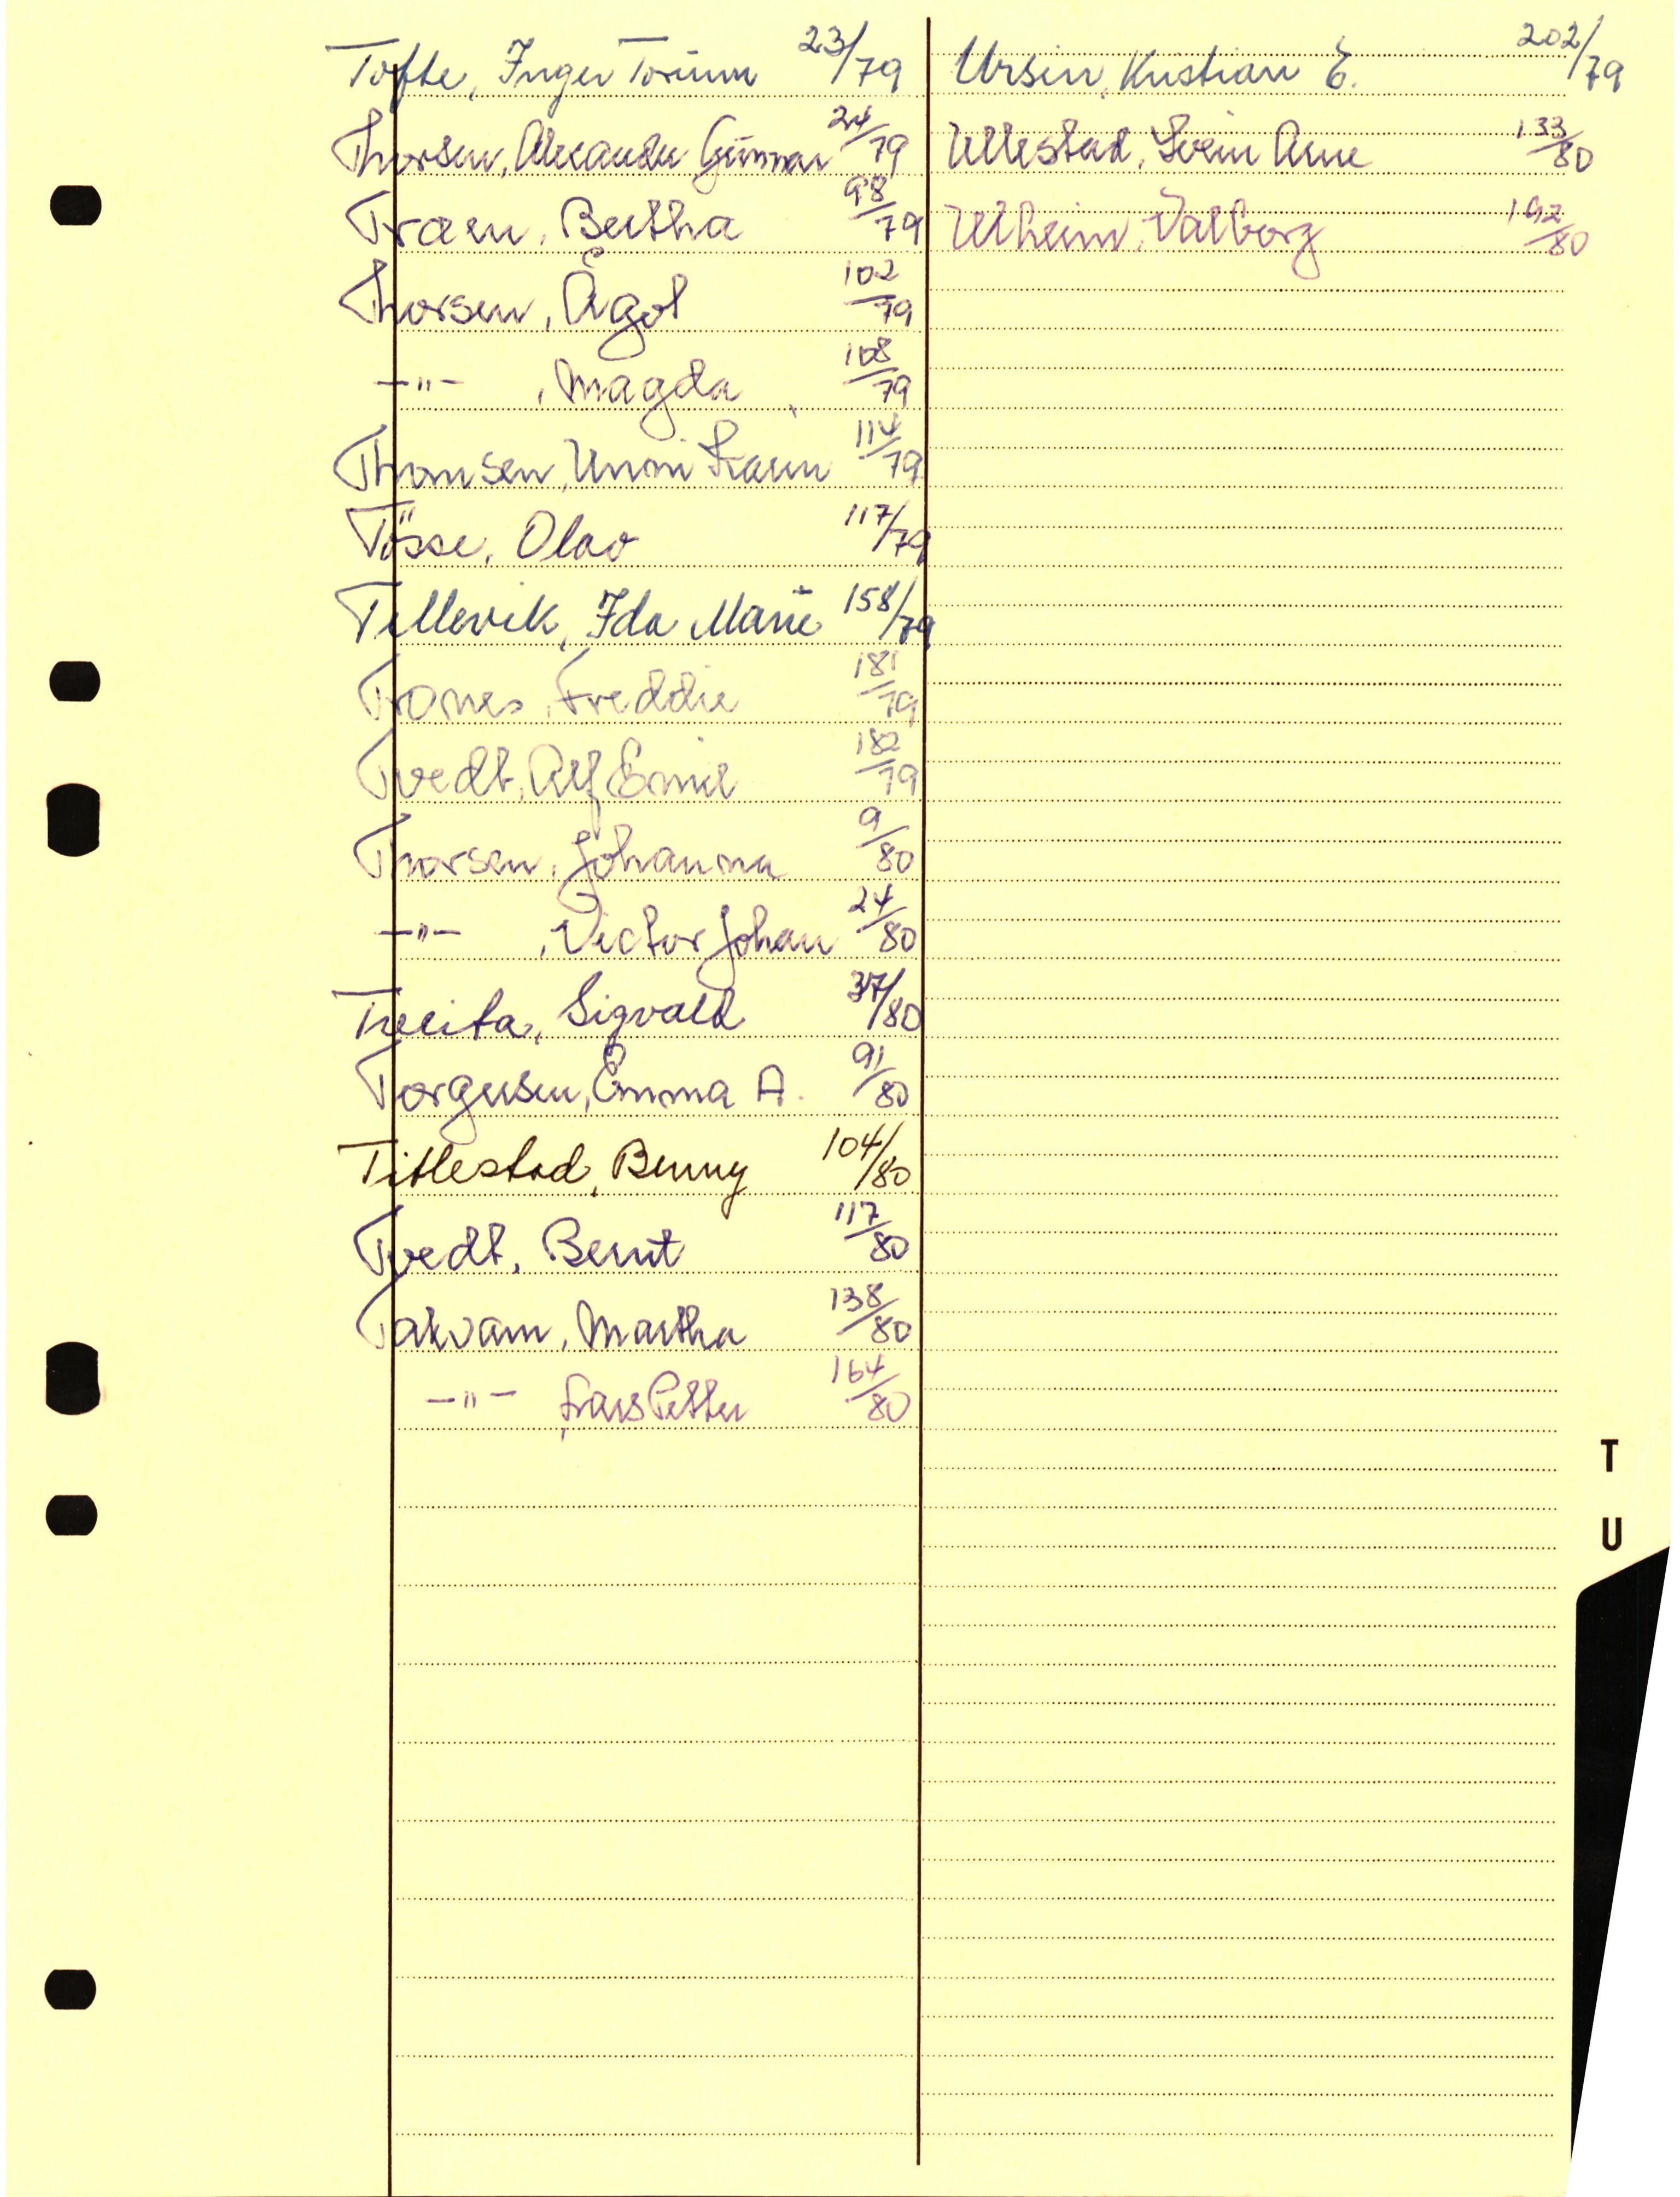 Tofte, Inger Torunn 23/79
Thorsen, Alexander Gunnar 24/79
Traen, Bertha 98/79
Thorsen, Ågot 102/79
—"— , Magda 108/79
Thomsen, Unni Karin 114/79
Tösse, Olav 117/79
Tellevik, Ida Marie 158/79
Tranes, Freddie 181/79
Tvedt, Alf Emil 182/79
Thorsen, Johanna 9/80
—"— , Victor Johan 24/80
Sigvald 37/80
Torgersen, Emma A. 91/80
Titlestad, Benny 104/80
Tvedt, Bernt 117/80
Takvam, Martha 138/80
—"— , Lars Petter 164/80
Ursin, Kristian E. 202/79
Ullestad, Svein Arne 133/80
Ulheim, Valborg 192/80
T
U